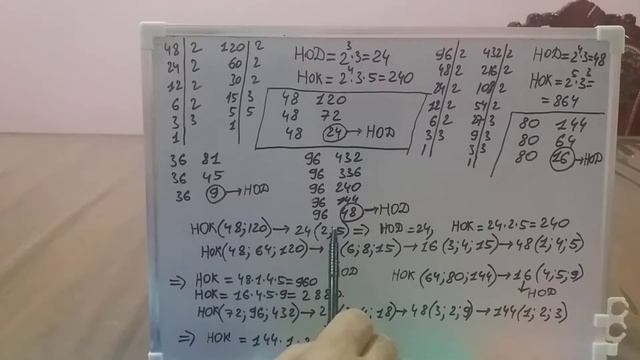 48|2 120|2
24|2 60|2
12|2 30|2
6|2 15|3
3|3 5|5
1| 1|
НОД=2³·3=24
НОК=2⁴·3·5=240
48 120
48 72
48 24→НОД
96|2 432|2
48|2 216|2
24|2 108|2
12|2 54|2
6|2 27|3
3|3 9|3
1| 3|3
1|
НОД=2⁴·3=48
НОК=2⁵·3³=
=864
80 144
80 64
80 16→НОД
36 81
36 45
36 9→НОД
96 432
96 336
96 240
96 144
96 48→НОД
НОК(48;120)→24(2;5)⇒ НОД=24, НОК=24·2·5=240
НОК(48;64;120)→ (6;8;15)→16(3;4;15)→48(1;4;5)
⇒ НОК=48·1·4·5=960
НОД
НОК(64;80;144)→16(4;5;9)
НОД
НОК=16·4·5·9=2880.
НОК(72;96;432)→2 4;18)→48(3;2;9)→144(1;2;3)
⇒ НОК=144·1·2